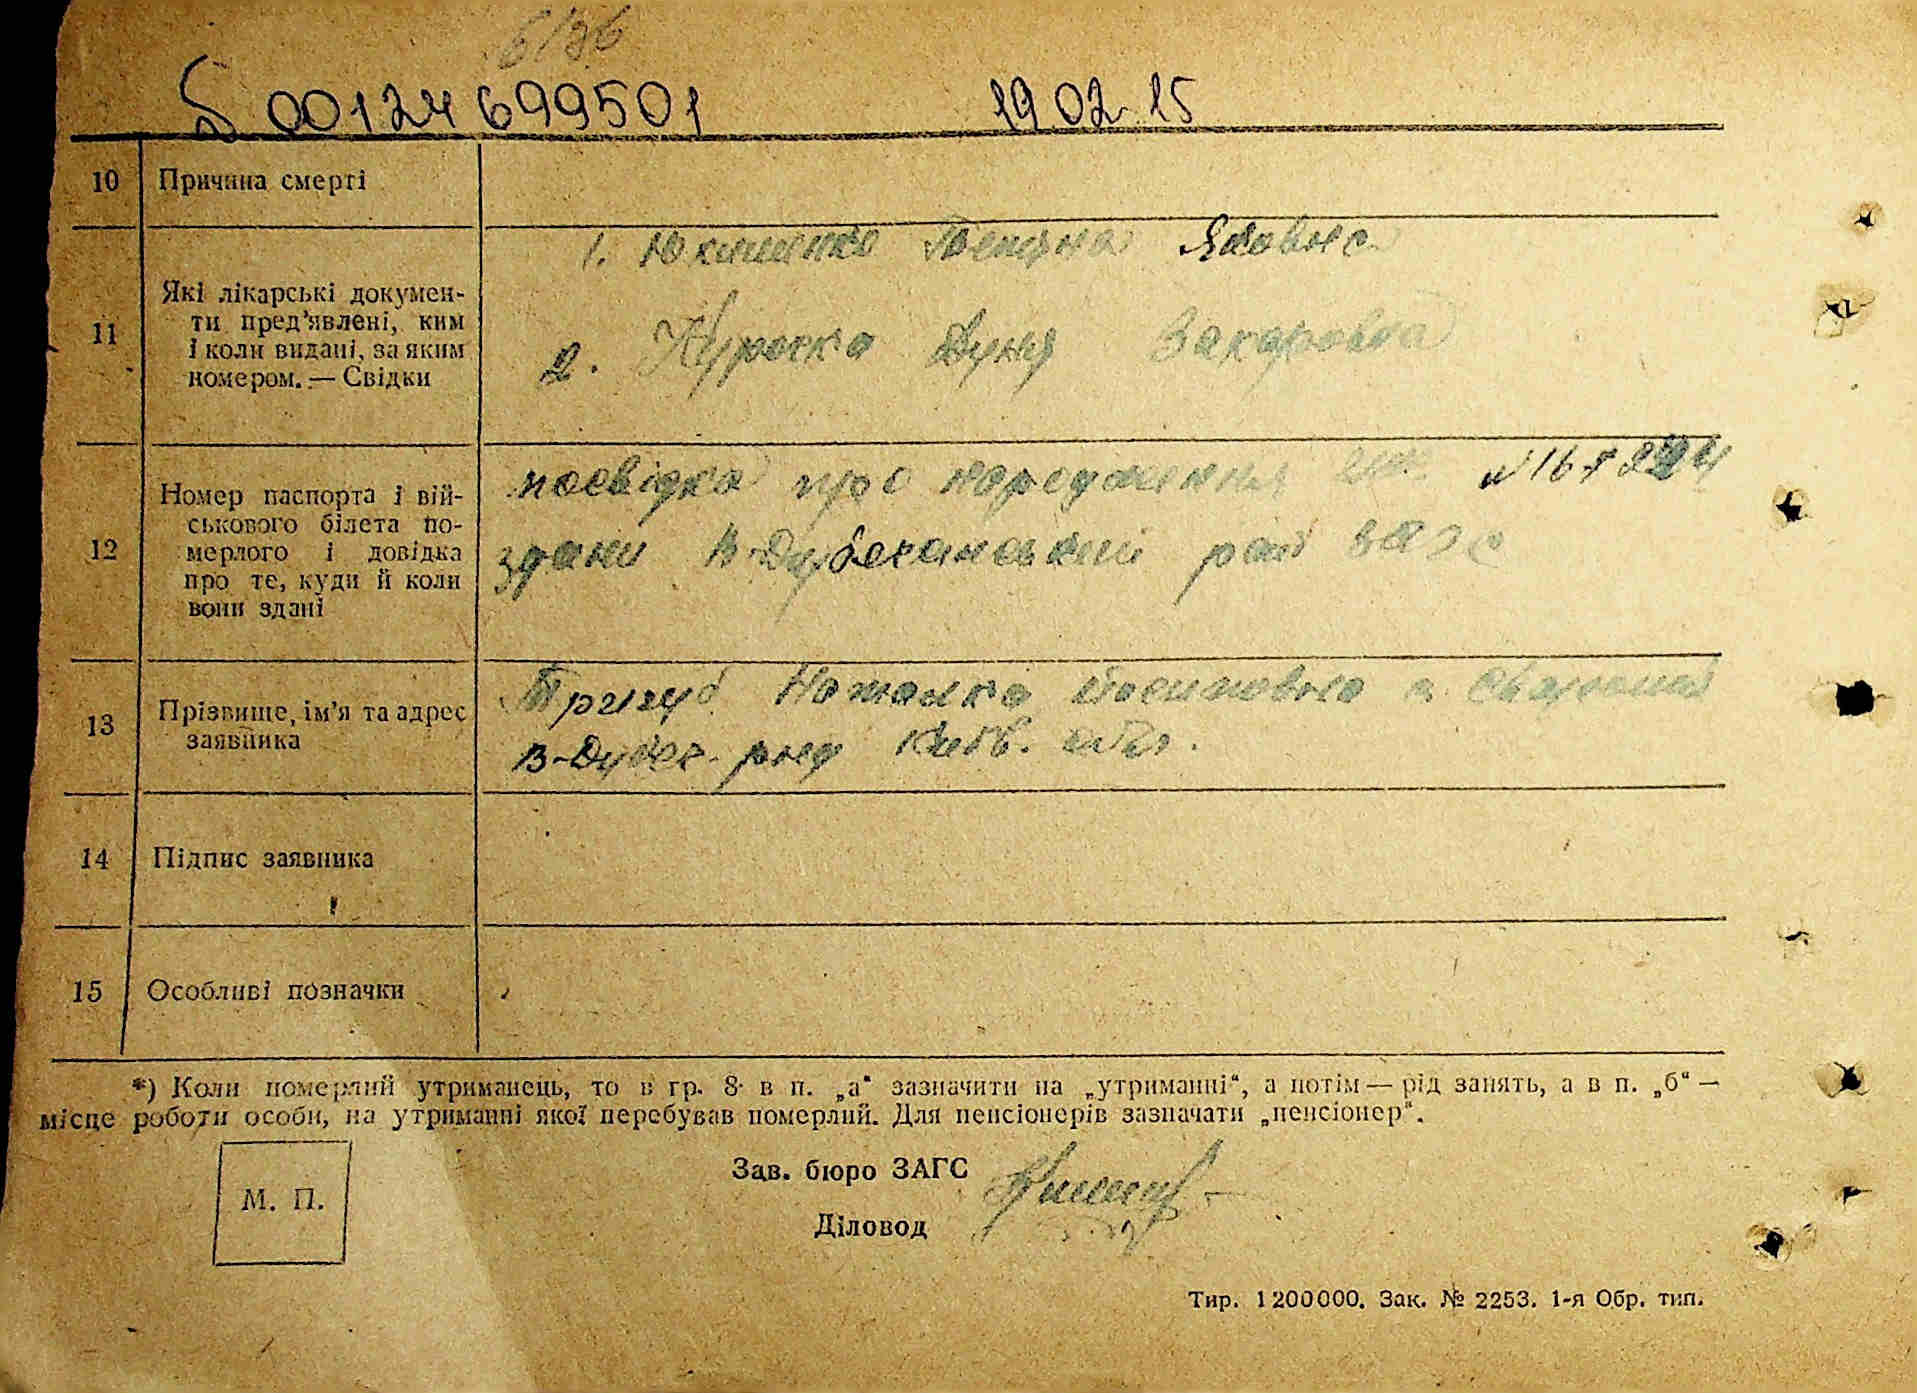 6/36
00124699501 19 02 15
10 Причина смерті
1. Юхименко Тетяна Яковна
11 Які лікарські докумен-
ти пред'явлені, ким
і коли видані, за яким
номером. — Свідки
2. Дуня Захаровна
12 Номер паспорта і вій-
ськового білета по-
мерлого і довідка
про те, куди й коли
вони здані
посвідка про народження №
здана В-Дубечанський рай загс
13 Прізвище, ім'я та адрес
заявника
Тризуб Наталка Йосиповна с.
В-Дубеч. району Київ. обл.
14 Підпис заявника
15 Особливі позначки
*) Коли померлий утриманець, то в гр. 8 в п. „а“ зазначити на „утриманні“, а потім — рід занять, а в п. „б“ —
місце роботи особи, на утриманні якої перебував померлий. Для пенсіонерів зазначати „пенсіонер“.
М. П.
Зав. бюро ЗАГС
Діловод
Тир. 1200000. Зак. № 2253. 1-я Обр. тип.